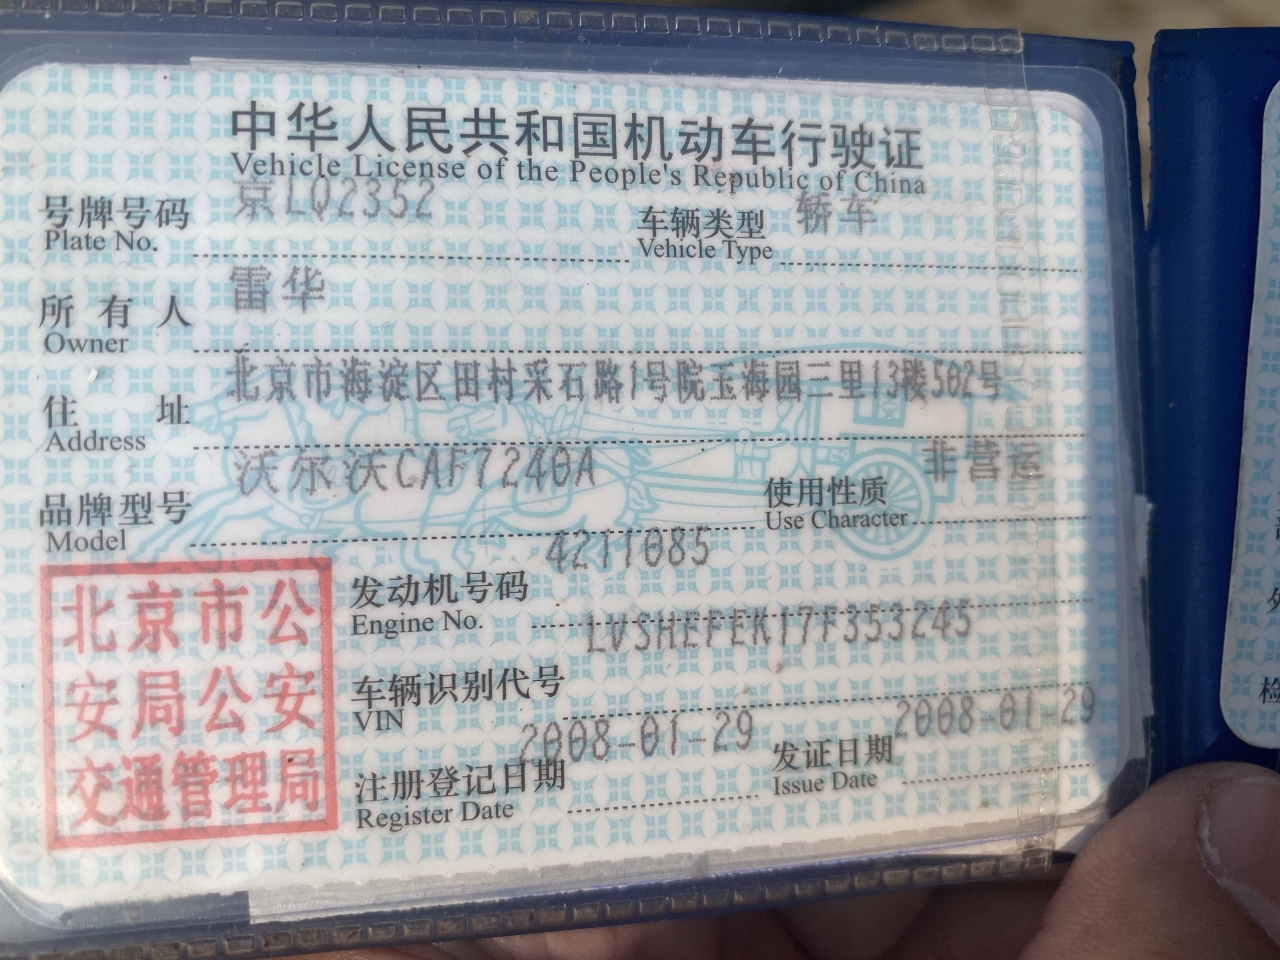 中华人民共和国机动车行驶证
Vehicle License of the People's Republic of China
号牌号码 京LQ2352 车辆类型 轿车
Plate No. Vehicle Type
所有人 雷华
Owner
住址 北京市海淀区田村采石路1号院玉海园三里13楼502号
Address
品牌型号 沃尔沃CAF7240A 使用性质 非营运
Model Use Character
发动机号码 4211085
Engine No.
车辆识别代号 LVSHEFEK17F353245
VIN
注册登记日期 2008-01-29 发证日期 2008-01-29
Register Date Issue Date
北京市公
安局公安
交通管理局
检